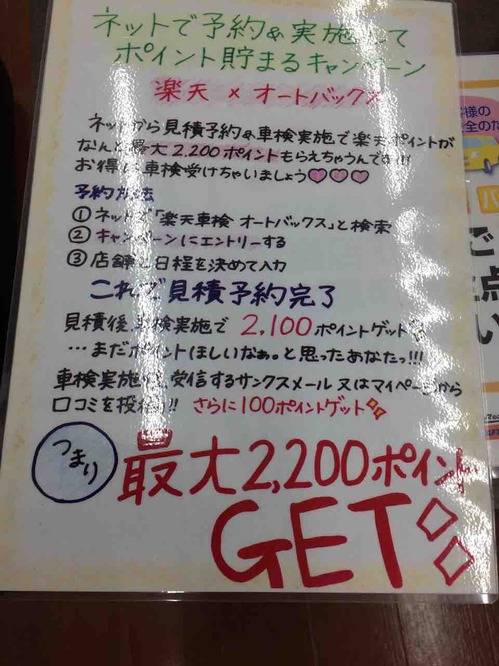 ネットで予約&実施して
ポイント貯まるキャンペーン
楽天 × オートバックス
ネットから見積予約&車検実施で楽天ポイントが
なんと最大2,200ポイントもらえちゃうんです!!!
お得に車検受けちゃいましょう♡♡♡
予約方法
① ネットで「楽天車検 オートバックス」と検索
② キャンペーンにエントリーする
③ 店舗と日程を決めて入力
これで見積予約完了
見積後、車検実施で 2,100ポイントゲット
…まだポイントほしいなぁ。と思ったあなたっ!!!
車検実施後、受信するサンクスメール 又はマイページから
口コミを投稿!! さらに100ポイントゲット
つまり
最大2,200ポイント
GET
様の
全のた